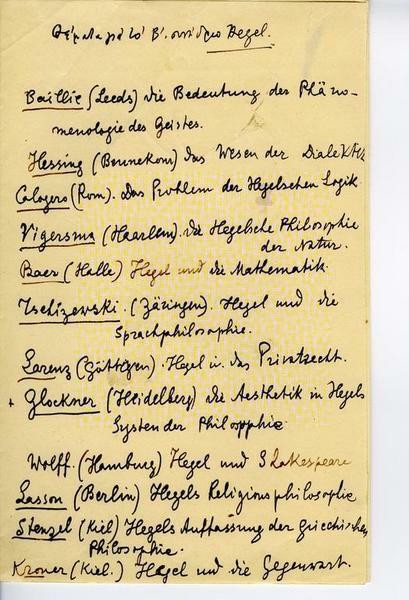 Θέματα για το Β'. συνέδριο Hegel.
Baillie (Leeds) die Bedeutung der Phäno-
menologie des Geistes.
Hessing (Bennekom) das Wesen der Dialektik
Calogero (Rom). Das Problem der Hegelschen Logik
Vigersma (Haarlem). die Hegelsche Philosophie
der Natur.
Baer (Halle) Hegel und die Mathematik.
Tschizewski. (Zäringen). Hegel und die
Sprachphilosophie.
Larenz (Göttigen). Hegel u. das Privatrecht.
+ Glockner (Heidelberg) die Aesthetik in Hegels
System der Philosophie.
Wolff. (Hamburg) Hegel und Shakespeare
Lasson (Berlin) Hegels Religionsphilosophie
Stenzel (Kiel) Hegels Auffassung der Griechischen
Philosophie.
Kroner (Kiel.) Hegel und die Gegenwart.